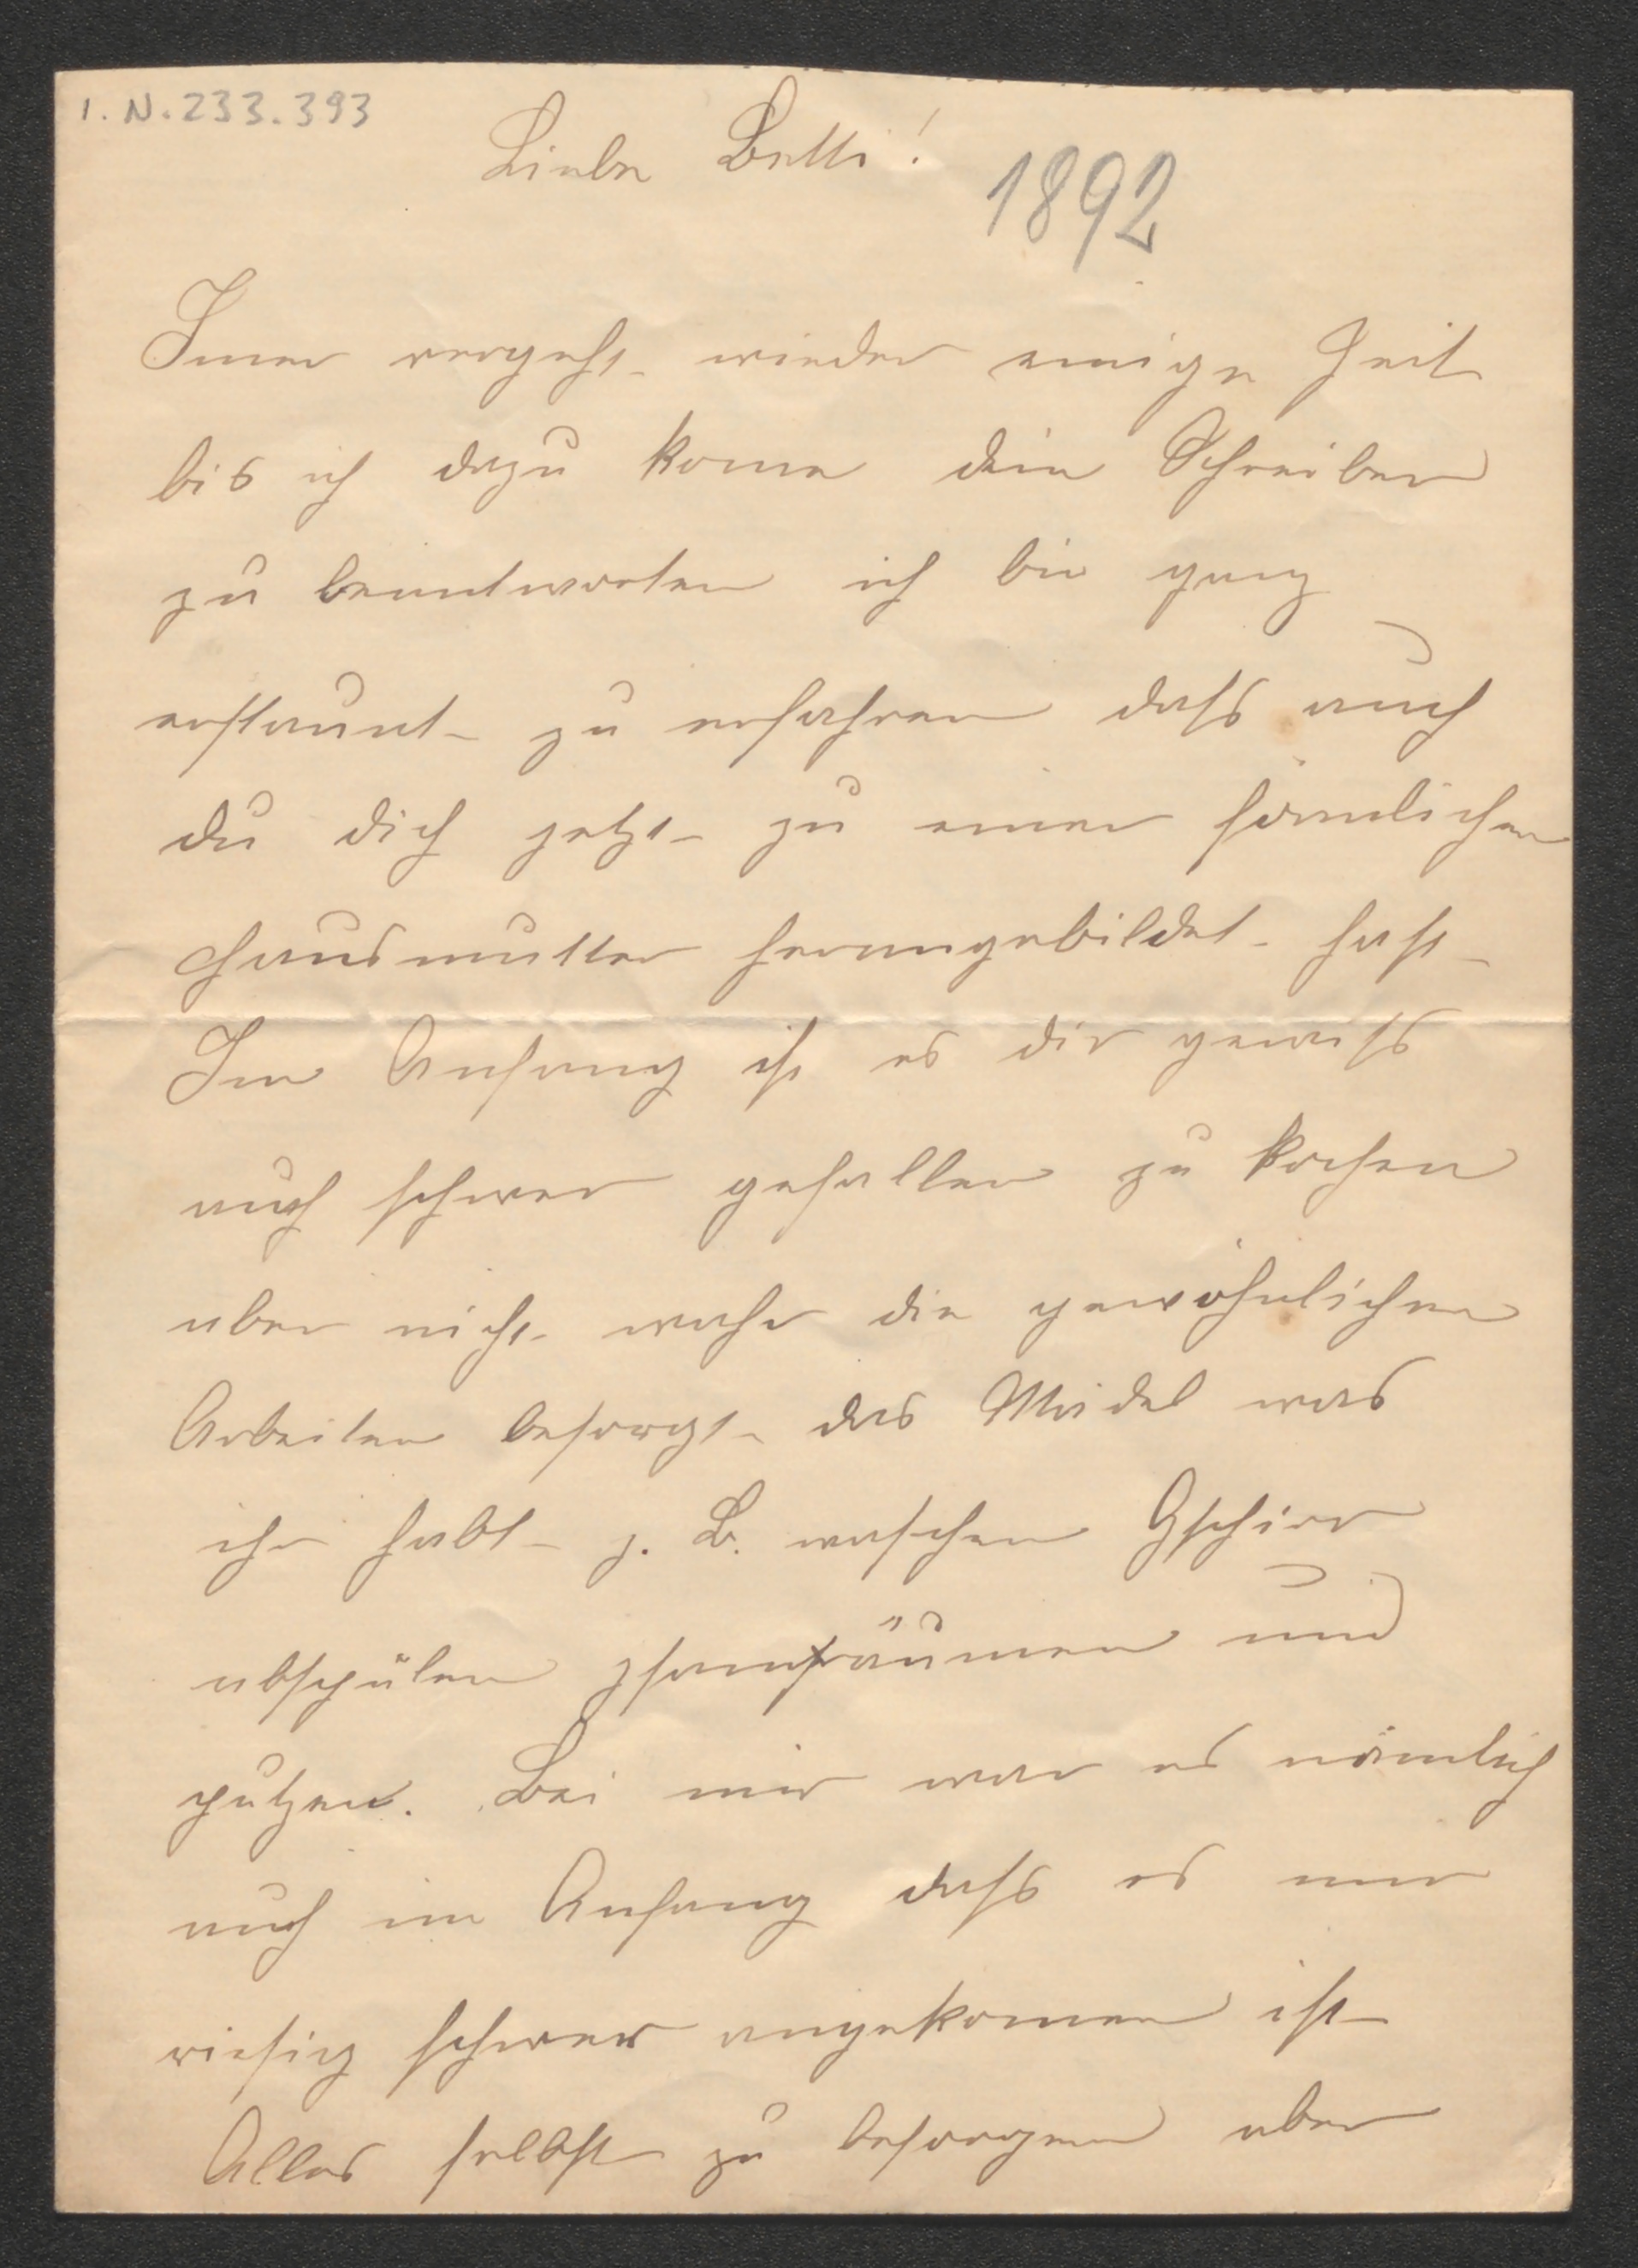 I.N.233.393
Liebe Betti!
1892
Imer vergeht wieder einige Zeit
bis ich dazu kome dein Schreiben
zu beantworten ich bin ganz
erstaunt zu erfahren dass auch
du dich jetzt zu einer förmlichen
Hausmutter herangebildet hast
Im Anfang ist es dir gewiss
auch schwer gefallen zu kochen
aber nicht wahr die gewöhnlichen
Arbeiten besorgt das Mädel was
ihr habt z. B. waschen Gschirr
abspülen zsamräumen und
putzen. Bei mir war es nämlich
auch im Anfang dass es mir
riesig schwer angekomen ist
Alles selbst zu besorgen aber